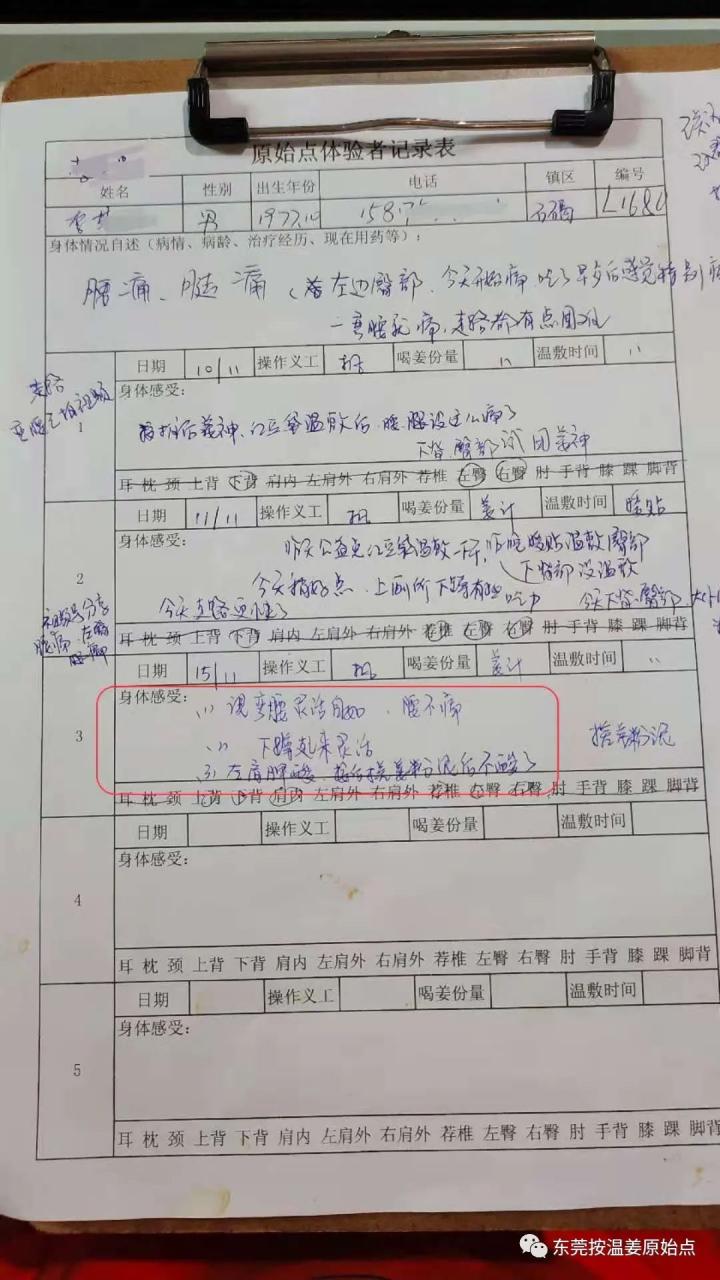 原始点体验者记录表
姓名 性别 出生年份 电话 镇区 编号
男 1977.10 158 石碣 L1680
身体情况自述（病情、病龄、治疗经历、现在用药等）：
腰痛、腿痛（左边臀部、今天开始痛
一弯腰就痛，走路都有点困难
1
日期 10/11 操作义工 喝姜份量 〃 温敷时间 〃
身体感受：
红豆袋温敷后，腰、腿没这么痛了
下背、臀部
耳 枕 颈 上背 下背 肩内 左肩外 右肩外 荐椎 左臀 右臀 肘 手背 膝 踝 脚背
2
日期 11/11 操作义工 喝姜份量 姜汁 温敷时间 暖贴
身体感受：
昨天 红豆袋温敷 昨晚暖贴温敷臀部
下背部没温敷
今天稍好点、上厕所下蹲有些吃力
今天走路更快了 今天下背、臀部
耳 枕 颈 上背 下背 肩内 左肩外 右肩外 荐椎 左臀 右臀 肘 手背 膝 踝 脚背
3
日期 15/11 操作义工 喝姜份量 姜汁 温敷时间 〃
身体感受：
(1) 说弯腰灵活自如、腰不痛
(2) 下蹲起来灵活
搓姜粉泥
(3) 左肩胛酸、搓姜粉泥后不酸了
耳 枕 颈 上背 下背 肩内 左肩外 右肩外 荐椎 左臀 右臀 肘 手背 膝 踝 脚背
4
日期 操作义工 喝姜份量 温敷时间
身体感受：
耳 枕 颈 上背 下背 肩内 左肩外 右肩外 荐椎 左臀 右臀 肘 手背 膝 踝 脚背
5
日期 操作义工 喝姜份量 温敷时间
身体感受：
耳 枕 颈 上背 下背 肩内 左肩外 右肩外 荐椎 左臀 右臀 肘 手背 膝 踝 脚背
东莞按温姜原始点